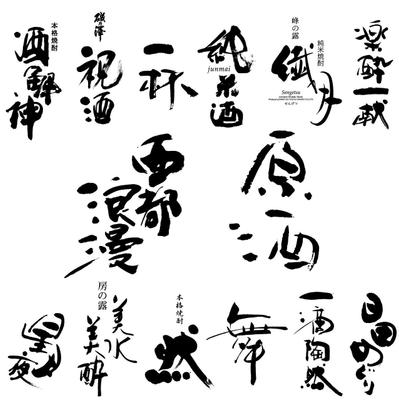 本格焼酎
酒解神
磯乃澤
祝酒
一杯
純米酒
junmai
峰の露
純米焼酎
繊月
Sengetsu
せんげつ
楽酔一献
西都
浪漫
原酒
星夜
房の露
美水
美酔
本格焼酎
然
舞
一酒陶然
日田
めぐり